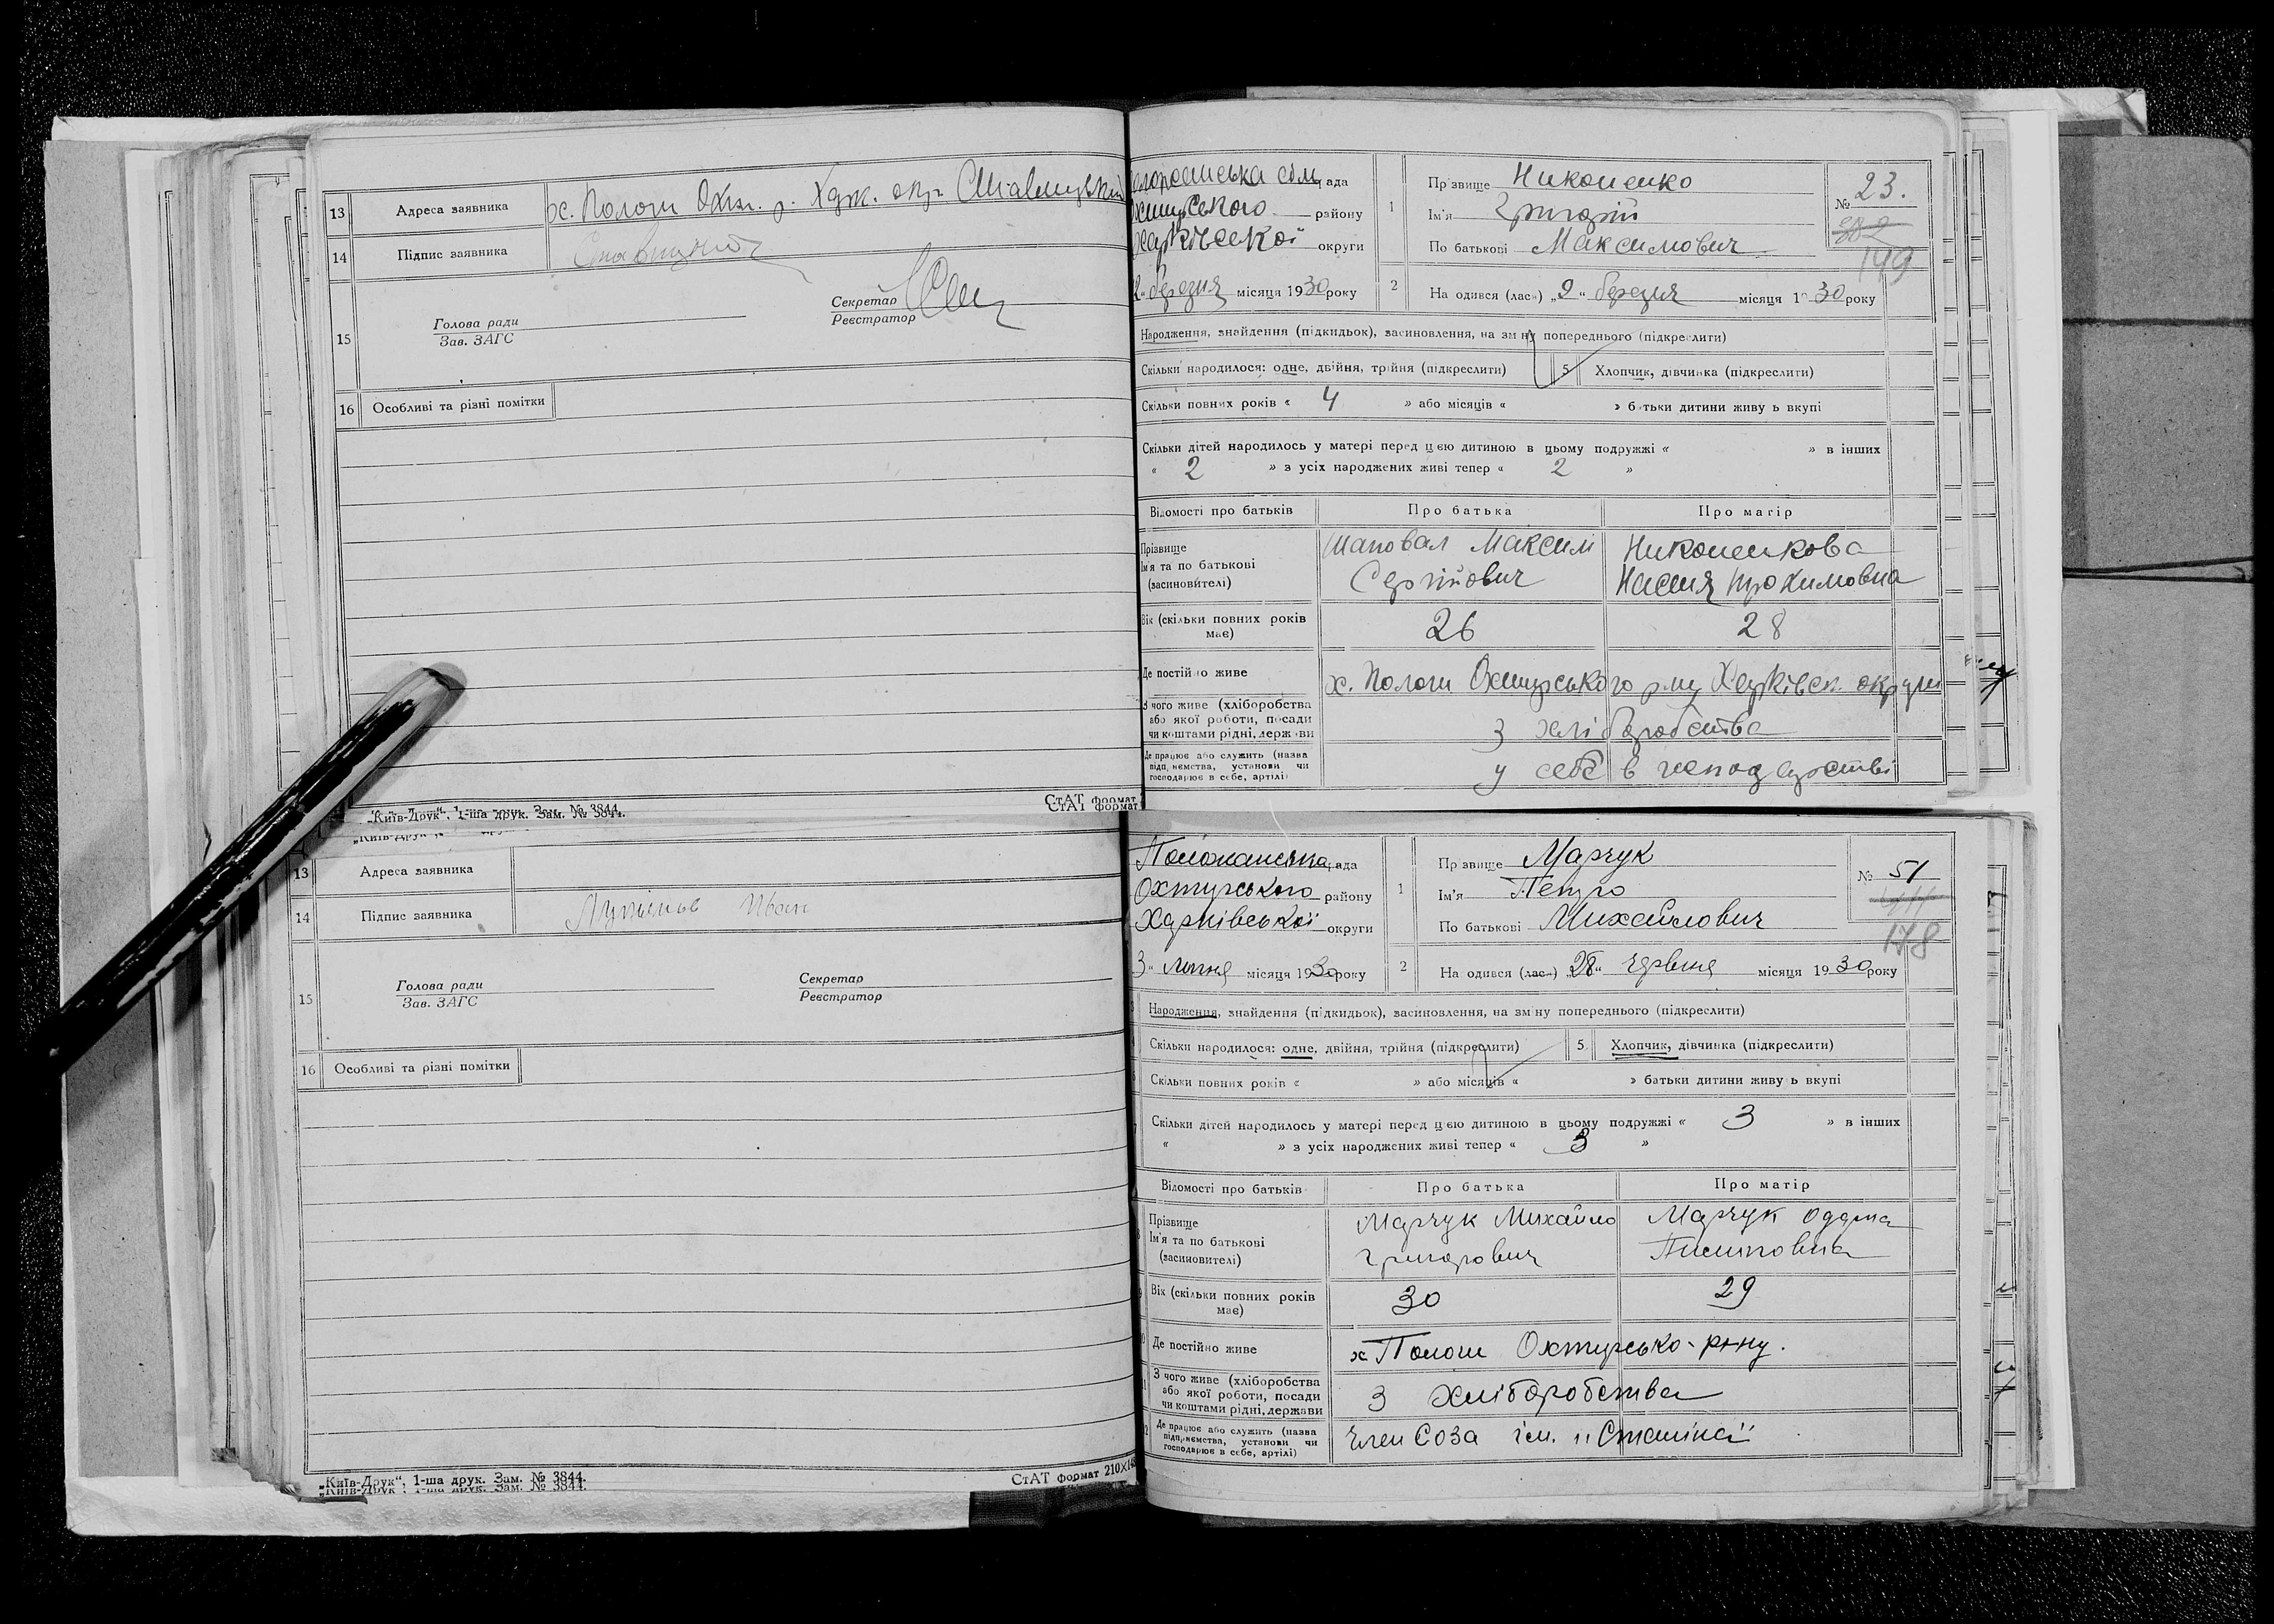 13 Адреса заявника х. Пологи Охт. р. Харк. окр.
14 Підпис заявника
15 Голова ради
Зав. ЗАГС
Секретар
Реєстратор
16 Особливі та різні помітки
„Київ-Друк“, 1-ша друк. Зам. № 3844.
СтАТ формат
рада
району
округи
березня місяця 1930 року
1 Прізвище Никоненко
Ім'я Григорій
По батькові Максимович
№ 23.
149
2 Народився (лась) „2“ березня місяця 1930 року
Народження, знайдення (підкидьок), засиновлення, на зміну попереднього (підкреслити)
Скільки народилося: одне, двійня, трійня (підкреслити) 5 Хлопчик, дівчинка (підкреслити)
Скільки повних років « 4 » або місяців « » батьки дитини живуть вкупі
Скільки дітей народилось у матері перед цією дитиною в цьому подружжі « » в інших
« 2 » з усіх народжених живі тепер « 2 »
Відомості про батьків Про батька Про матір
Прізвище
Ім'я та по батькові
(засиновителі)
Шаповал Максим
Сергійович
Никоненкова
Настя
Вік (скільки повних років має) 26 28
Де постійно живе х. Пологи Охтирського р-ну Харківськ. округи
З чого живе (хліборобства
або якої роботи, посади
чи коштами рідні, держави
З хліборобства
Де працює або служить (назва
підприємства, установи чи
господарює в себе, артілі)
у себе в господарстві
13 Адреса заявника
14 Підпис заявника Іван
15 Голова ради
Зав. ЗАГС
Секретар
Реєстратор
16 Особливі та різні помітки
„Київ-Друк“, 1-ша друк. Зам. № 3844.
„Київ-Друк“, 1-ша друк. Зам. № 3844.
СтАТ формат 210Х
рада
Охтирського району
Харківської округи
3“ липня місяця 1930 року
1 Прізвище Марчук
Ім'я Петро
По батькові Михайлович
№ 51
178
2 Народився (лась) „28“ червня місяця 1930 року
Народження, знайдення (підкидьок), засиновлення, на зміну попереднього (підкреслити)
Скільки народилося: одне, двійня, трійня (підкреслити) 5 Хлопчик, дівчинка (підкреслити)
Скільки повних років « » або місяців « » батьки дитини живуть вкупі
Скільки дітей народилось у матері перед цією дитиною в цьому подружжі « 3 » в інших
« » з усіх народжених живі тепер « 3 »
Відомості про батьків Про батька Про матір
Прізвище
Ім'я та по батькові
(засиновителі)
Марчук Михайло
Григорович
Марчук
Вік (скільки повних років має) 30 29
Де постійно живе х Пологи Охтирсько- р-ну.
З чого живе (хліборобства
або якої роботи, посади
чи коштами рідні, держави
З хліборобства
Де працює або служить (назва
підприємства, установи чи
господарює в себе, артілі)
Член Соза ім. „Сталіна“